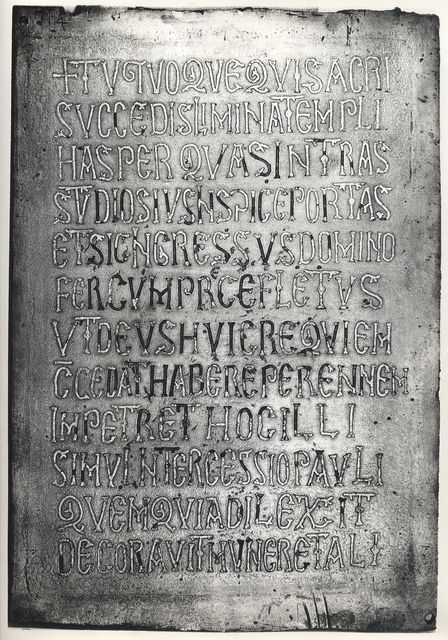 +TVQVOQVEQVISACRI
SVCCEDISLIMINATEMPLI
HASPERQVASINTRAS
STVDIOSIVSINSPICEPORTAS
ETSICINGRESSVSDOMINO
FERCVMPRECEFLETVS
VTDEVSHVICREQVIEM
C̄CEDATHABEREPERENNEM
IMPETRETHOCILLI
SIMVLINTERCESSIOPAVLI
QVEMQVIADILEXIT
DECORAVITMVNERETALI